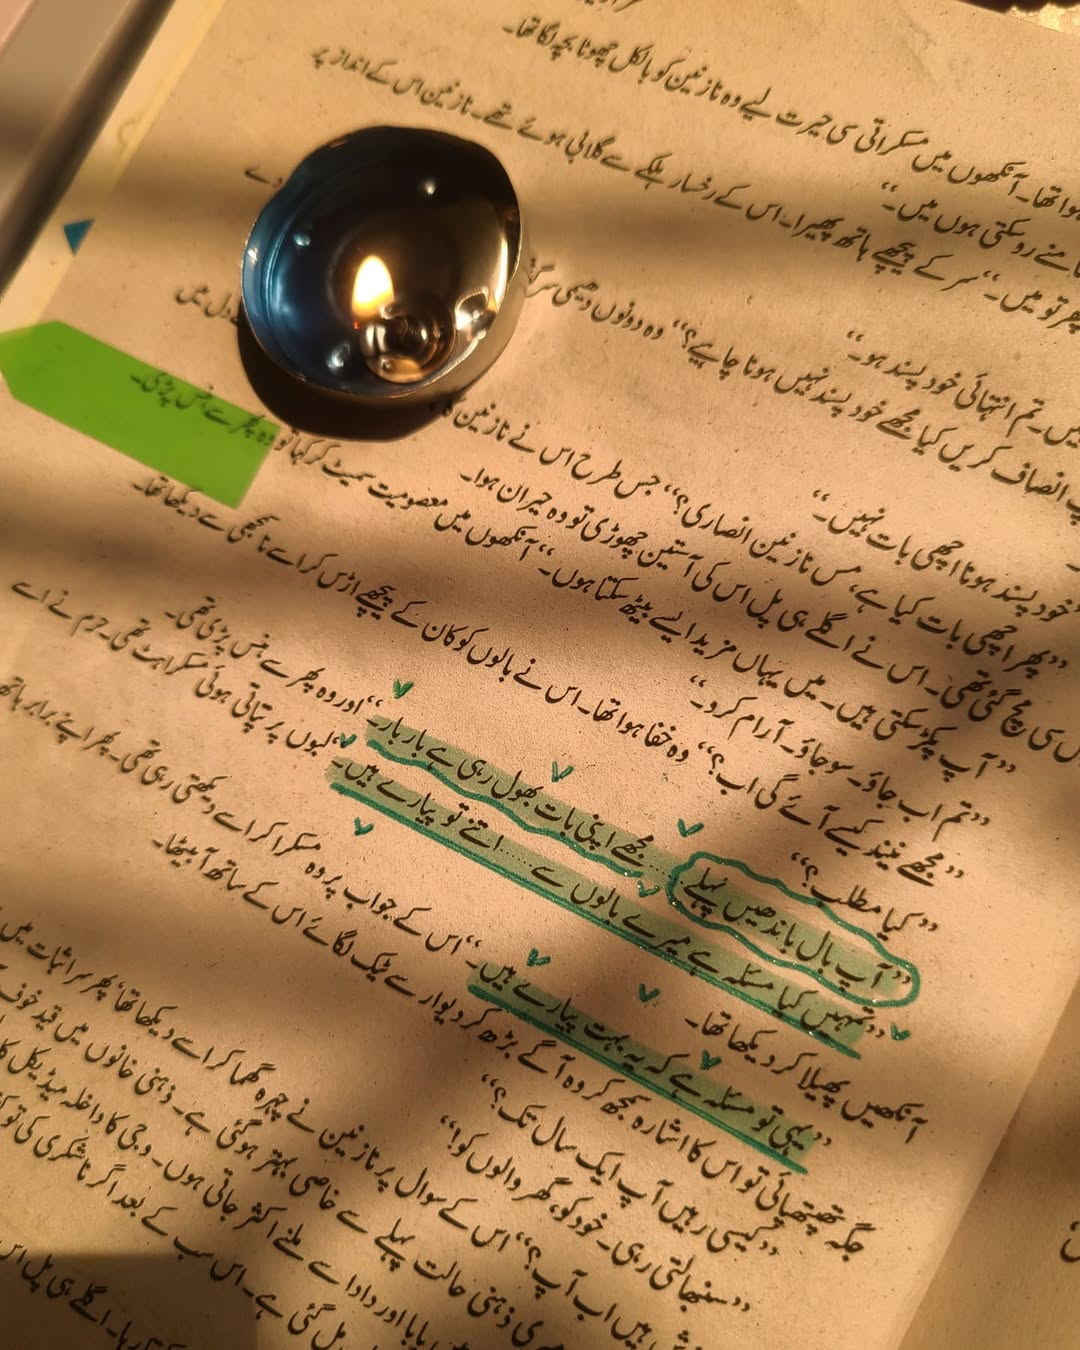 وہ نازنین کو بالکل چھوٹا بچہ لگا تھا۔
ہوا تھا۔ آنکھوں میں مسکراتی سی حیرت لیے
سامنے رو سکتی ہوں میں۔“
پھر تو میں۔“ سر کے پیچھے ہاتھ پھیرا۔ اس کے رخسار ہلکے سے گلابی ہوئے تھے۔ نازنین اس کے انداز پر
تم انتہائی خود پسند ہو۔“
انصاف کریں کیا مجھے خود پسند نہیں ہونا چاہیے؟“ وہ دونوں دھیمی
”خود پسند ہونا اچھی بات نہیں۔“
”پھر اچھی بات کیا ہے، مس نازنین انصاری؟“ جس طرح اس نے نازنین
سی مچ گئی تھی۔ اس نے اگلے ہی پل اس کی آستین چھوڑی تو وہ حیران ہوا۔
”آپ پکڑ سکتی ہیں۔ میں یہاں مزید ایسے بیٹھ سکتا ہوں۔“ آنکھوں میں معصومیت سمیٹ کر کہا تو وہ پھر سے ہنس پڑی۔
”تم اب جاؤ۔ سو جاؤ۔ آرام کرو۔“
”مجھے نیند کیسے آئے گی اب؟“ وہ خفا ہوا تھا۔ اس نے بالوں کو کان کے پیچھے اڑس کر اسے ناسمجھی سے دیکھا تھا۔
”کیا مطلب؟“
”آپ بال باندھیں پہلے ..... مجھے اپنی بات بھول رہی ہے بار بار۔“ اور وہ پھر سے ہنس پڑی تھی۔
”تمہیں کیا مسئلہ ہے میرے بالوں سے ..... اتنے تو پیارے ہیں۔“ لبوں پر تپاتی ہوئی مسکراہٹ تھی۔ حرم نے اسے
آنکھیں پھیلا کر دیکھا تھا۔
”یہی تو مسئلہ ہے کہ یہ بہت پیارے ہیں۔“ اس کے جواب پر وہ مسکرا کر اسے دیکھتی رہی تھی۔ پھر اپنے برابر ہاتھ
جگہ تھپتھپائی تو اس کا اشارہ سمجھ کر وہ آگے بڑھ کر دیوار سے ٹیک لگائے اس کے ساتھ آ بیٹھا۔
”کیسی رہیں آپ ایک سال تک؟“
”سنبھالتی رہی۔ خود کو، گھر والوں کو!“
ہیں اب آپ؟“ اس کے سوال پر نازنین نے چہرہ گھما کر اسے دیکھا تھا‘ پھر سر اثبات میں
ذہنی حالت پہلے سے خاصی بہتر ہو گئی ہے۔ ذہنی خانوں میں قید خوف
پاپا اور دادا سے ملنے اکثر جاتی ہوں۔ وجی کا داخلہ میڈیکل
مل گئی ہے۔ اس سب کے بعد اگر ناشکری کی تو
رہا۔ اگلے ہی پل اس